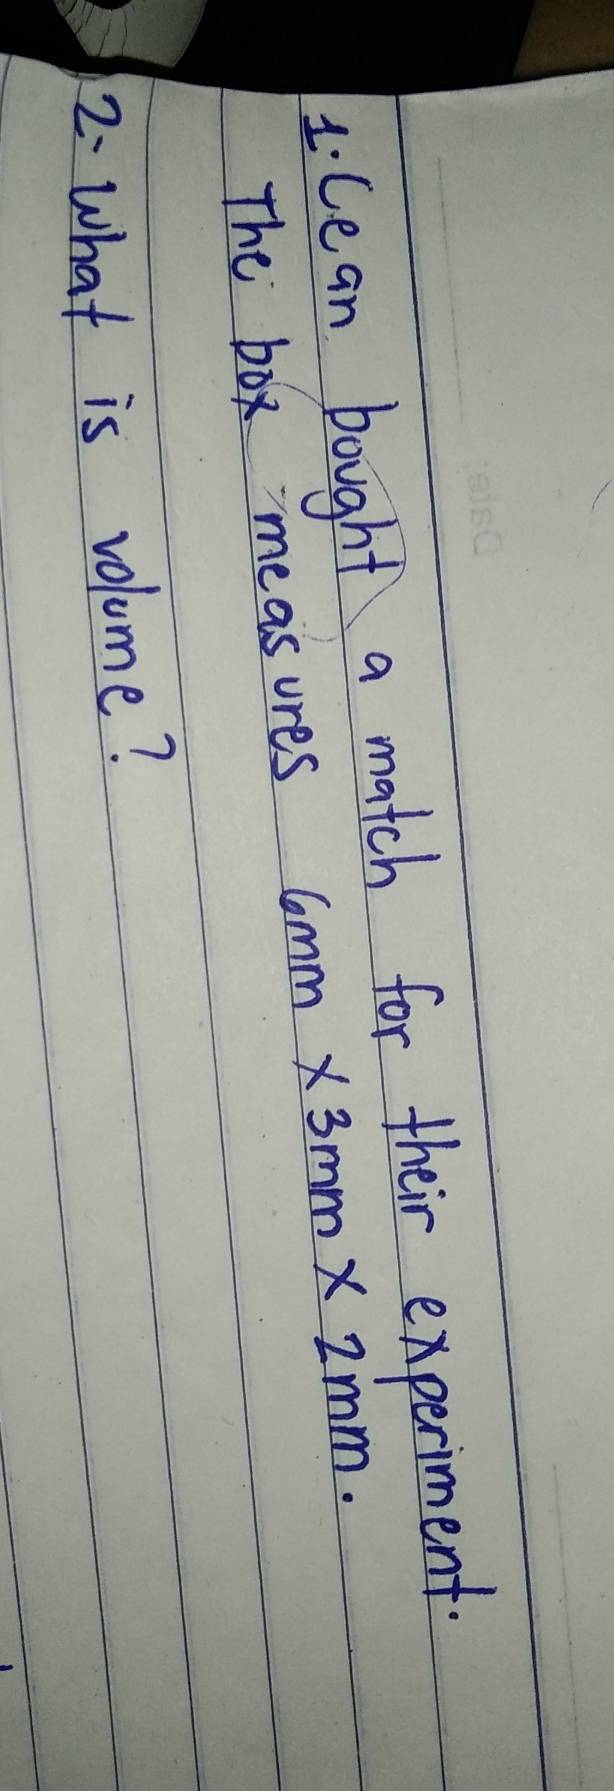 1. Cean bought a match for their experiment.
The box measures 6mm x 3mm x 2mm.
2. What is volume?
Date: